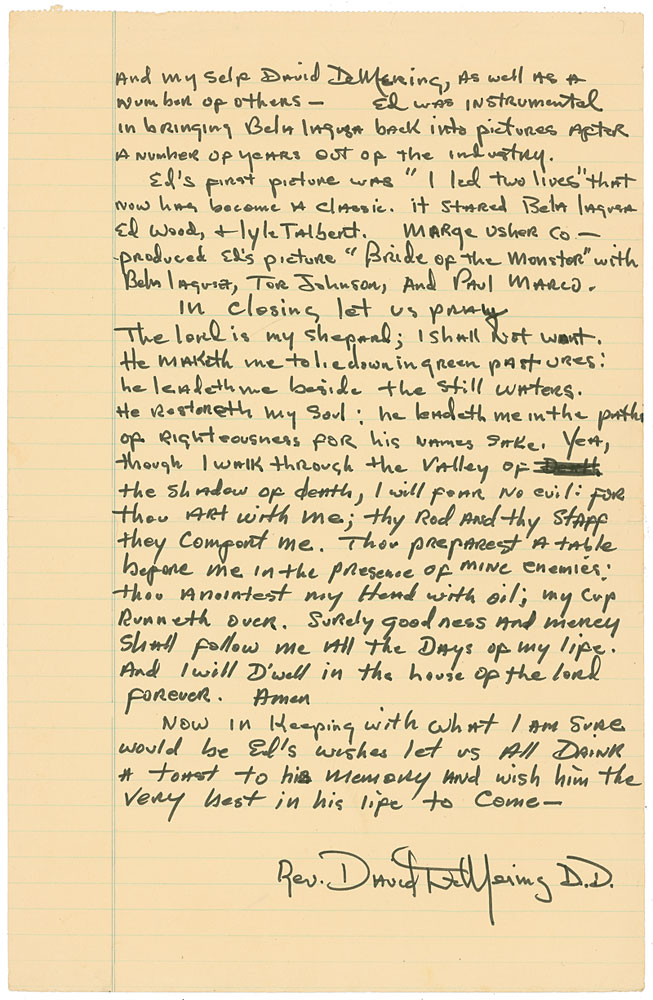 And my self David DeMering, as well as a
number of others — Ed was instrumental
in bringing Bela lagusa back into pictures after
a number of years out of the industry.
Ed's first picture was "I led two lives" that
now has become a classic. it stared Bela lagusa
Ed Wood, + lyle Talbert. Marge Usher Co —
produced Ed's picture "Bride of the Monster" with
Bela lagusa, Tor Johnson, And Paul Marco.
In closing let us pray
The lord is my shepard; I shall not want.
He maketh me to lie down in green pastures:
he leadeth me beside the still waters.
He restoreth my soul: he leadeth me in the paths
of righteousness for his names sake. Yea,
though I walk through the valley of
the shadow of death, I will fear no evil: for
thou art with me; thy Rod and thy Staff
they comfort me. Thou preparest a table
before me in the presence of mine enemies:
thou anointest my Head with oil; my cup
runneth over. Surely goodness and mercy
shall follow me all the days of my life.
And I will D'well in the house of the lord
forever. Amen
Now in keeping with what I am sure
would be Ed's wishes let us all Drink
a toast to his memory and wish him the
very best in his life to come —
Rev. David DeMering D.D.